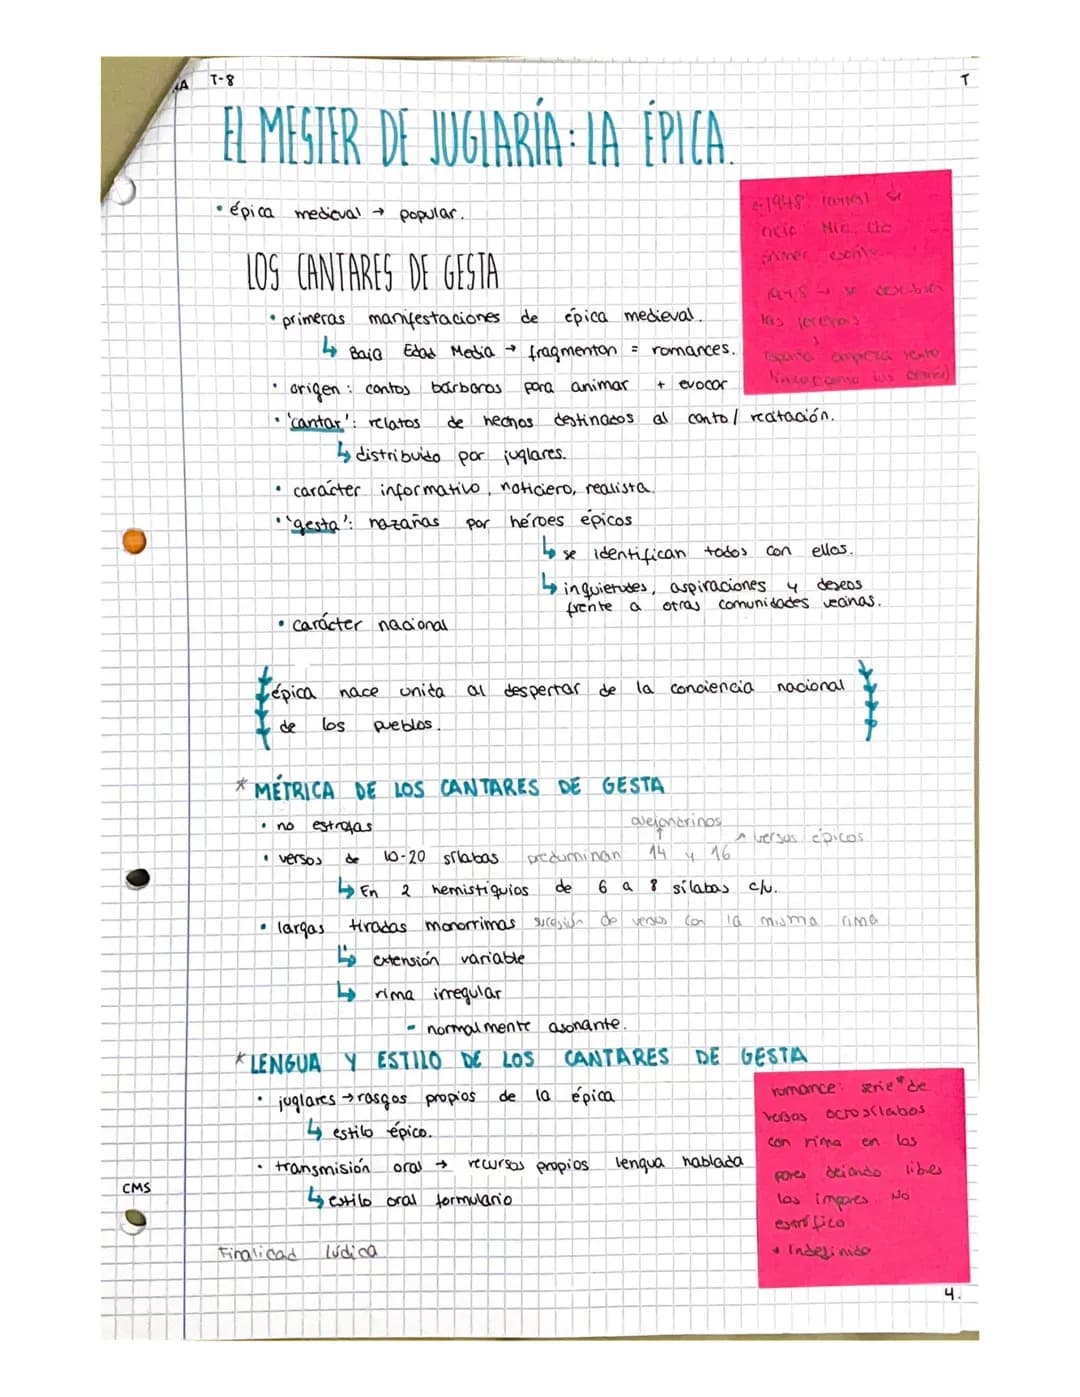 T-8
T
EL MESTER DE JUGLARÍA: LA ÉPICA.
• épica medieval → popular.
LOS CANTARES DE GESTA
• primeras manifestaciones de épica medieval.
↳ Baja Edad Media → fragmentan = romances.
• origen: cantos bárbaros para animar + evocar
• 'cantar': relatos de hechos destinados al canto / recitación.
↳ distribuido por juglares.
• carácter informativo, noticiero, realista.
• 'gesta': hazañas por héroes épicos
↳ se identifican todos con ellos.
↳ inquietudes, aspiraciones y deseos
frente a otras comunidades vecinas.
• carácter nacional
épica nace unida al despertar de la conciencia nacional
de los pueblos.
* MÉTRICA DE LOS CANTARES DE GESTA
• no estrofas
alejandrinos
versos épicos
• versos de 10-20 sílabas predominan 14 y 16
↳ En 2 hemistiquios de 6 a 8 sílabas c/u.
• largas tiradas monorrimas sucesión de versos con la misma rima
↳ extensión variable
↳ rima irregular
- normalmente asonante.
* LENGUA Y ESTILO DE LOS CANTARES DE GESTA
• juglares → rasgos propios de la épica
↳ estilo épico.
• transmisión oral → recursos propios lengua hablada
↳ estilo oral formulario
Finalidad lúdica
CMS
1948
1948 → se
las
España empieza
romance: serie* de
versos octosílabos
con rima en los
pares dejando libes
los impares. No
estrófico
* Indefinido
4.